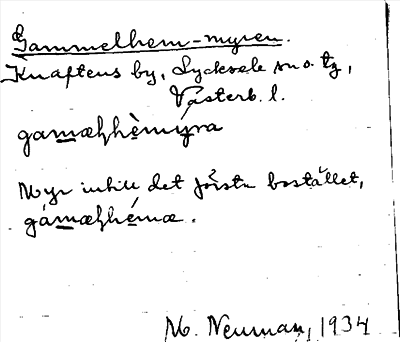 Gammelhem-myren.
Knaftens by, Lycksele sn o. tg,
Västerb. l.
gamæļhèmýra
Myr intill det första bostället,
gámæļhémæ.
M. Neuman, 1934